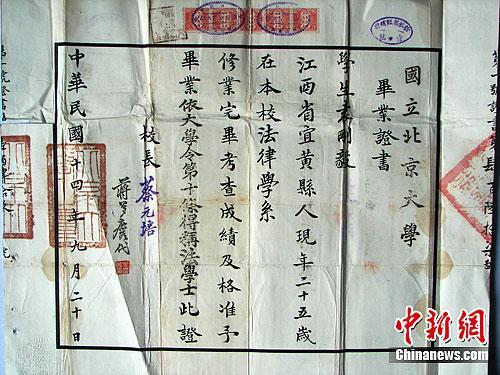 國立北京大學
畢業證書
學生袁剛毅
江西省宜黃縣人現年二十五歲
在本校法律學系
修業完畢考查成績及格准予
畢業依大學令第十條得稱法學士此證
校長 蔡元培
蔣夢麐代
中華民國十四年九月二十日
中新網
Chinanews.com